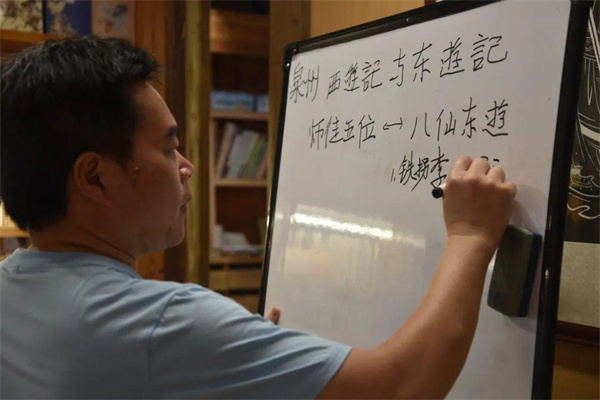 泉州 西遊記 与东遊記
师徒五位 ↔ 八仙东遊
1.铁拐李